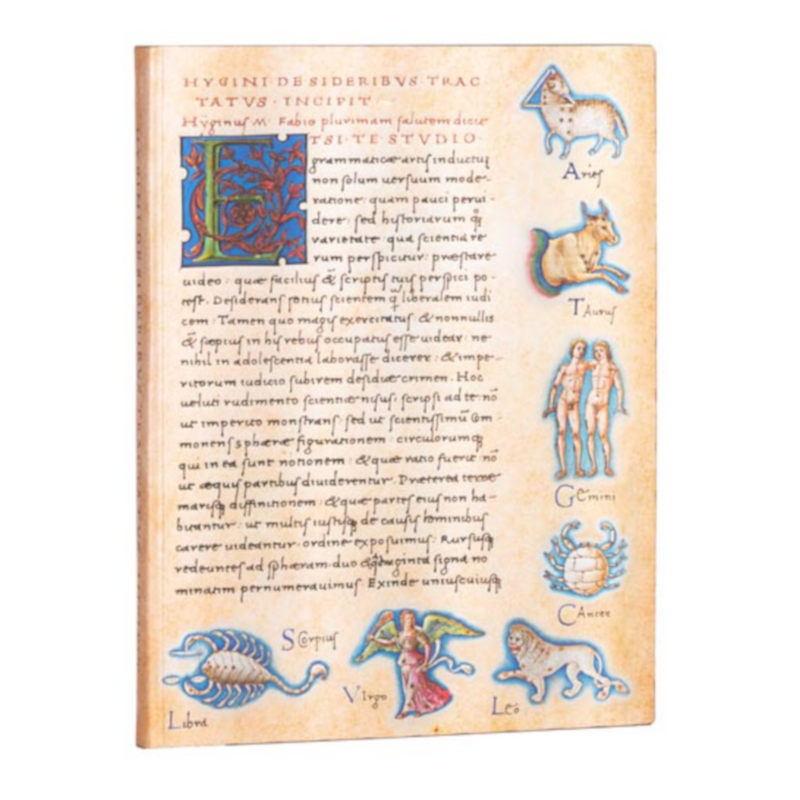 HYGINI·DE SIDERIBVS TRAC
TATVS·INCIPIT
Hÿginuſ M. Fabio plurimam ſalutem dicit
ETSI·TE STVDIO·
grammaticæ artiſ inductuſ
non ſolum uerſuum mode-
ratione: quam pauci perui-
dere: ſed hiſtoriarum q̄
varietate qua ſcientia re
rum perſpicitur: præſtare
uideo: quæ faciliuſ & ſcriptiſ tuiſ perſpici po-
teſt. Deſideranſ potiuſ ſcientem q̄ liberalem iudi
cem. Tamen quo magiſ exercitatuſ &nonnulliſ
& ſæpiuſ in hiſ rebuſ occupatuſ eſſe uidear: ne
nihil in adoleſcentia laboraſſe dicerer: &impe-
ritorum iudicio ſubirem deſidiæ crimen. Hoc
ueluti rudimento ſcientiæ niſuſ: ſcripſi ad te nō
ut imperito monſtranſ: ſed ut ſcientiſſimū Com-
monenſ sphæræ figurationem: circulorumq
qui in ea ſunt notionem: &quæ ratio fuerit nō
ut æquiſ partibuſ diuiderentur. Præterea terræ
mariſq diffinitionem: &quæ parteſ eiuſ non ha-
bitantur: ut multiſ iuſtiſq de cauſiſ hominibuſ
carere uideantur: ordine expoſuimuſ. Rurſuſq
redeunteſ ad ſphæram duo &quadraginta ſigna no
minatim pernumerauimuſ. Exinde uniuſcuiuſq
Arieſ
TAuruſ
GEmini
CAncer
LEo
Virgo
SCorpiuſ
Libra